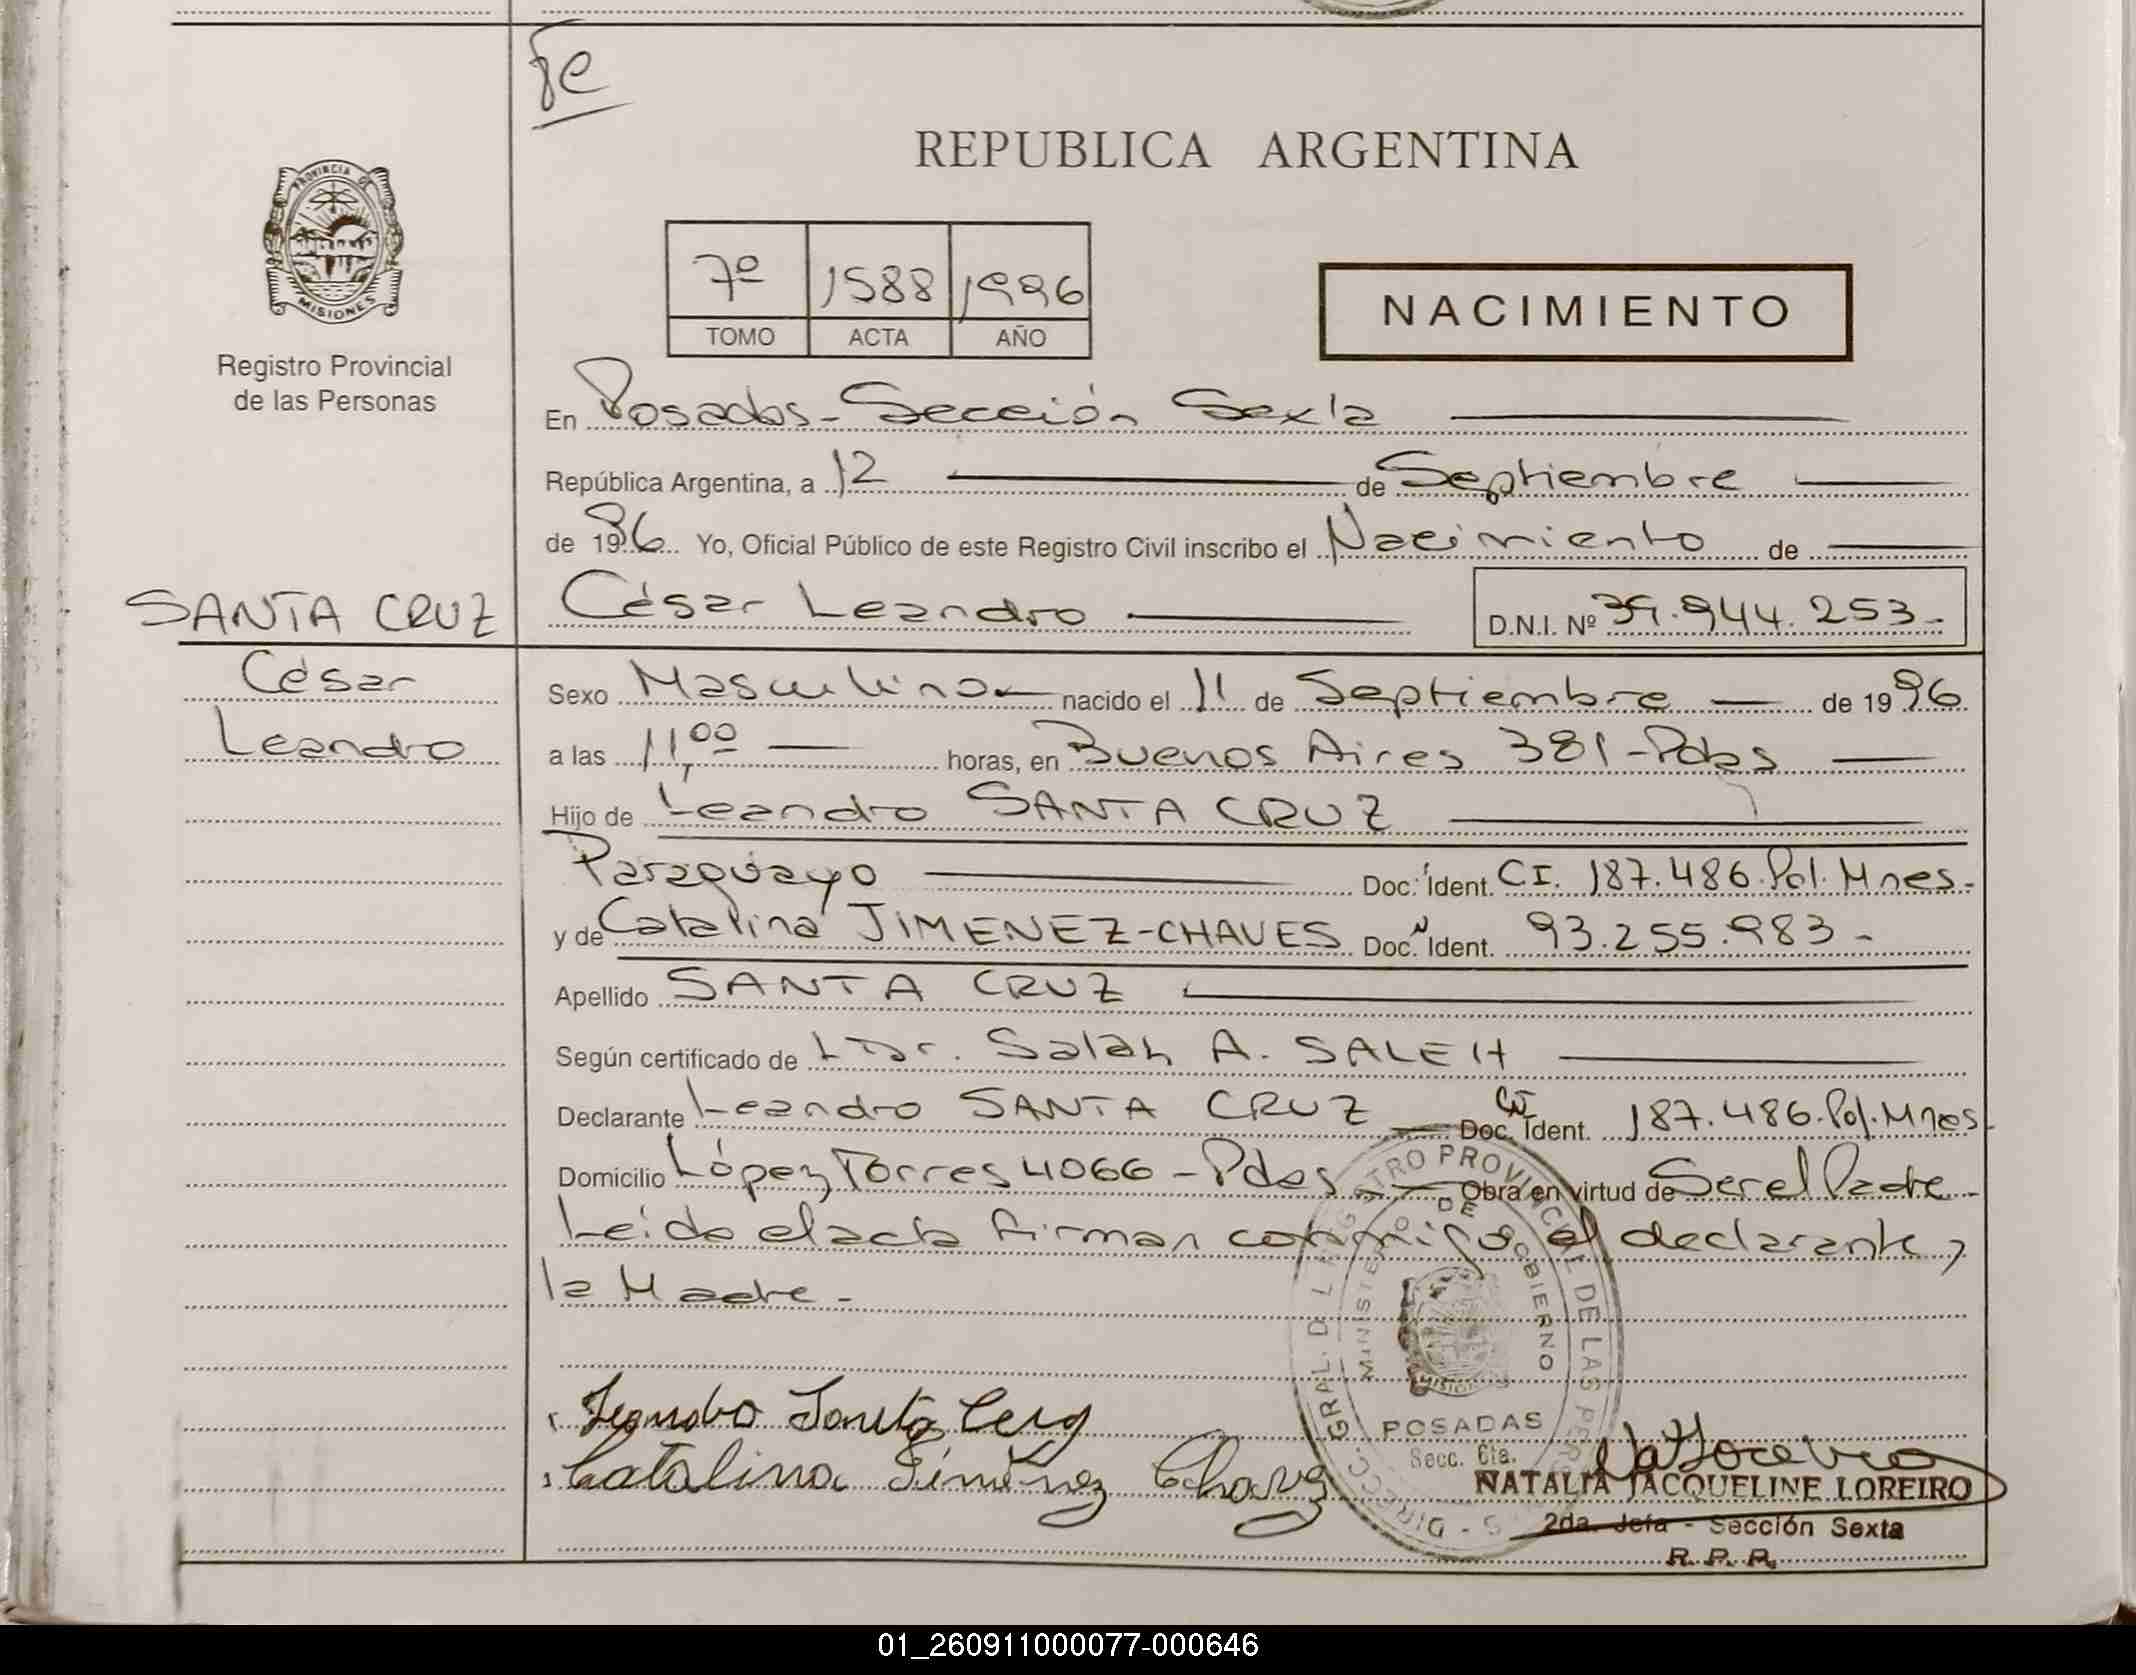 Fe
REPUBLICA ARGENTINA
PROVINCIA DE
MISIONES
Registro Provincial
de las Personas
7º 1588 1996
TOMO ACTA AÑO
NACIMIENTO
En Posadas - Sección Sexta
República Argentina, a 12 de Septiembre
de 1996 Yo, Oficial Público de este Registro Civil inscribo el Nacimiento de
SANTA CRUZ
César Leandro D.N.I. Nº 39.944.253-
César
Leandro
Sexo Masculino nacido el 11 de Septiembre de 1996
a las 11,00 horas, en Buenos Aires 381 - Pdas
Hijo de Leandro SANTA CRUZ
Paraguayo Doc. Ident. CI. 187.486. Pol. Mnes-
y de Catalina JIMENEZ-CHAVES Doc. N Ident. 93.255.983-
Apellido SANTA CRUZ
Según certificado de Dr. Salah A. SALEH
Declarante Leandro SANTA CRUZ Doc. Ident. CI 187.486. Pol. Mnes
Domicilio López Torres 4066 - Pdas Obra en virtud de Ser el Padre-
Leída el acta firman conmigo el declarante y
la Madre.-
Leandro Santa Cruz
Catalina Jiménez Chavez
DIRECC. GRAL. DEL REGISTRO PROVINCIAL DE LAS PERSONAS
MINISTERIO DE GOBIERNO
MISIONES
POSADAS
Secc. 6ta.
NATALIA JACQUELINE LOREIRO
2da. Jefa - Sección Sexta
R. P. P.
01_260911000077-000646